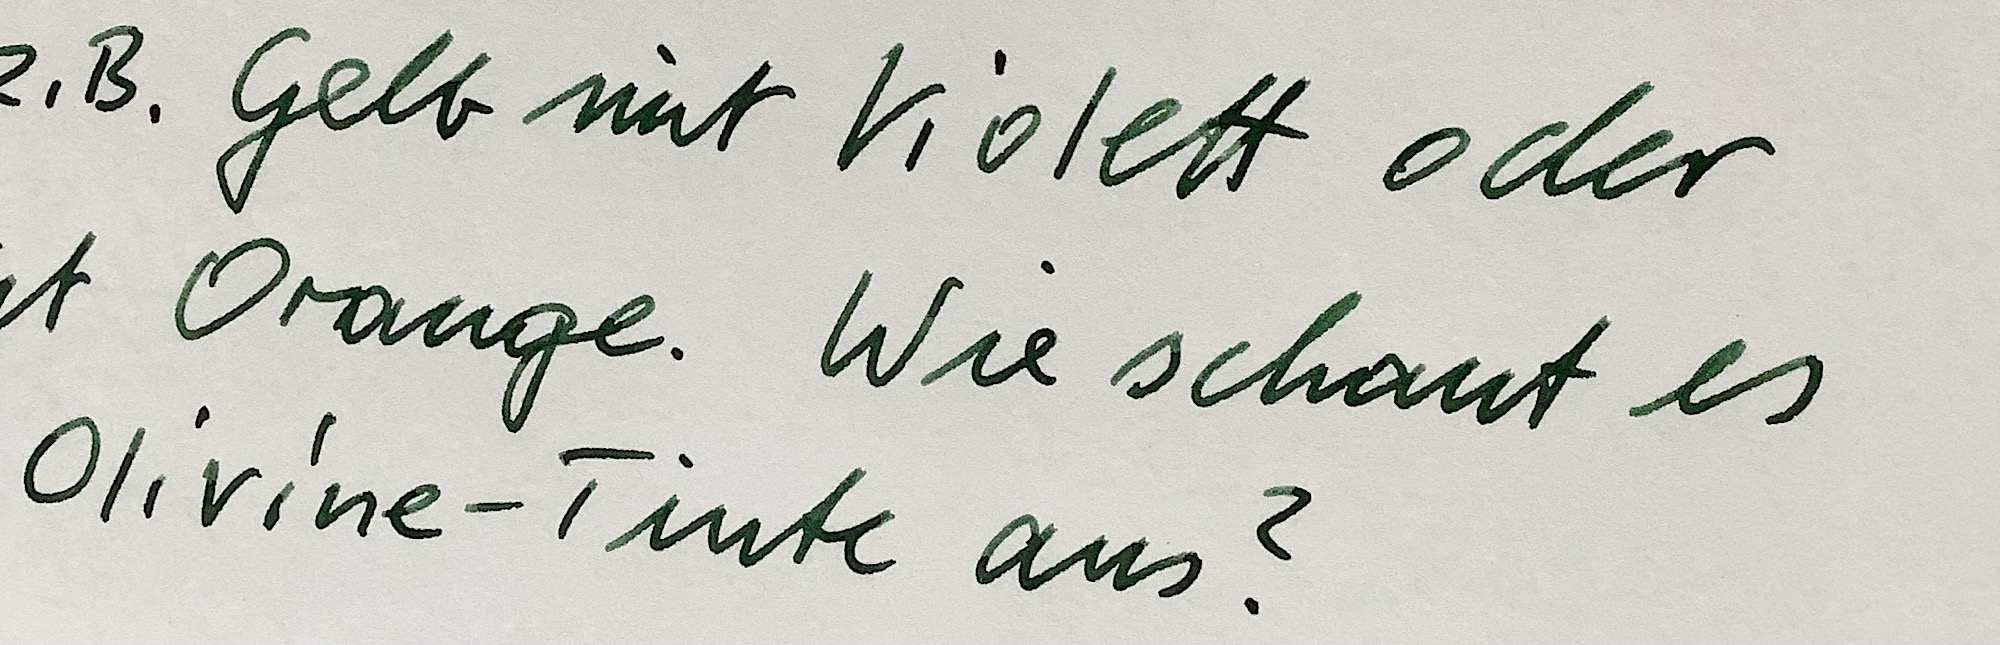 z.B. Gelb mit Violett oder
Orange. Wie schaut es
Olivine-Tinte aus?